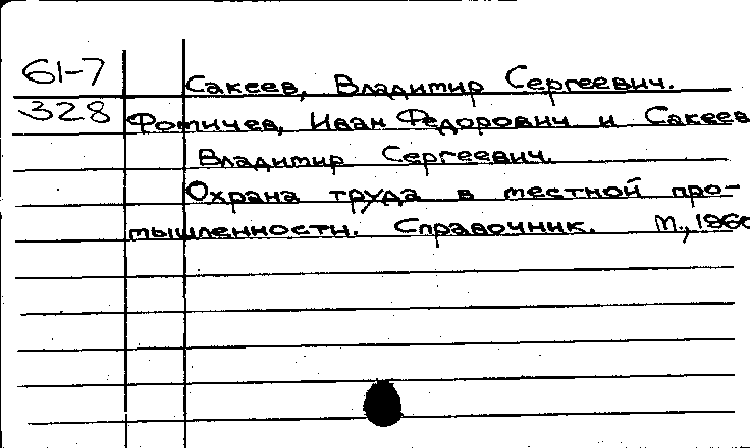 61-7 Сакеев, Владимир Сергеевич.
328 Фотичев, Иван Федорович и Сакеев
Владимир Сергеевич.
Охрана труда в местной про-
мышленности. Справочник. М., 1960